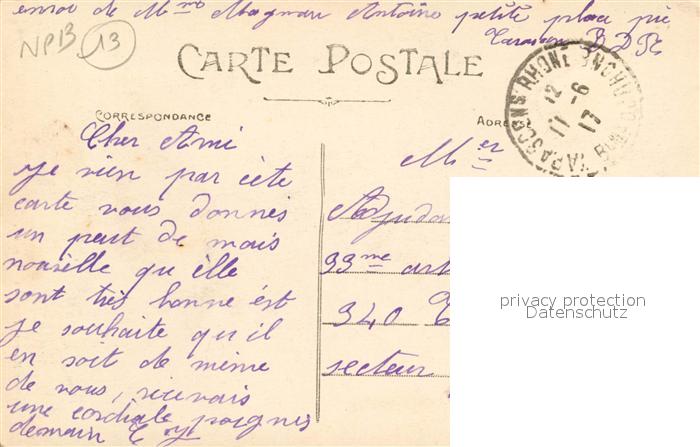 envoi de Mme Magnan Antoine petite place
Tarascon B D R
NPB 13
CARTE POSTALE
CORRESPONDANCE
ADRESSE
TARASCON S RHONE
12
11 - 6
17
Cher Ami
Je vien par cète
carte vous donnes
un peut de mais
nouvelle qu'èlle
sont très bonne ést
je souhaite qu'il
en soit de mème
de vous, recevais
une cordiale poignes
demain
Mer
Adjudan
33me art
340
secteur
privacy protection
Datenschutz